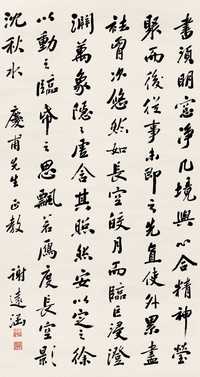 書須明窗淨几境與心合精神瑩
聚而後從事未即之先直使外累盡
祛胷次悠然如長空皎月而臨巨浸澄
瀾萬象隱隱虛含其照然安以定之徐
以動之臨帋之思飄若鴈度長空影
沈秋水
慶甫先生正教
謝遠涵